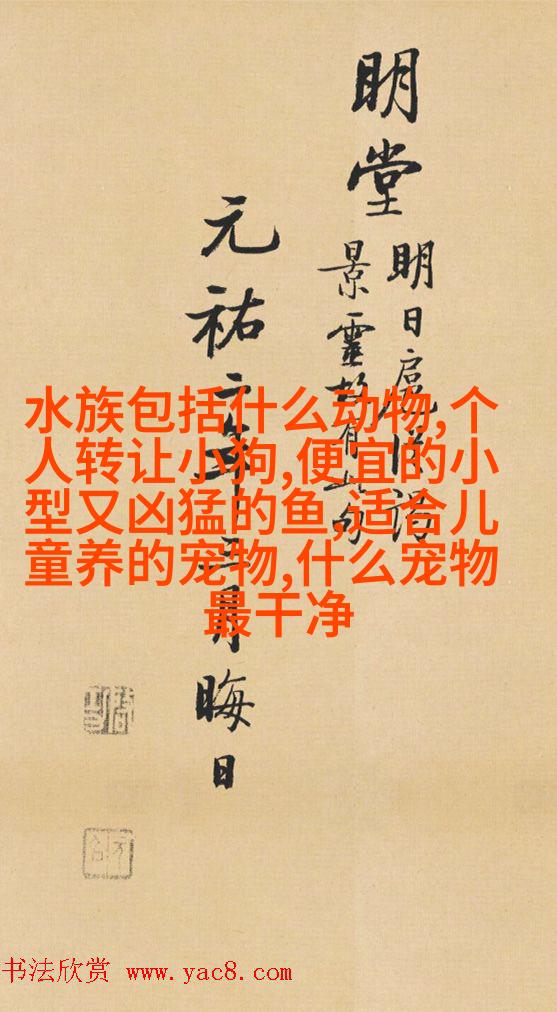 明堂
明日扈從詣
景靈故有此句
元祐二年三月晦日
水族包括什么动物,个
人转让小狗,便宜的小
型又凶猛的鱼,适合儿
童养的宠物,什么宠物
最干净
书法欣赏 www.yac8.com